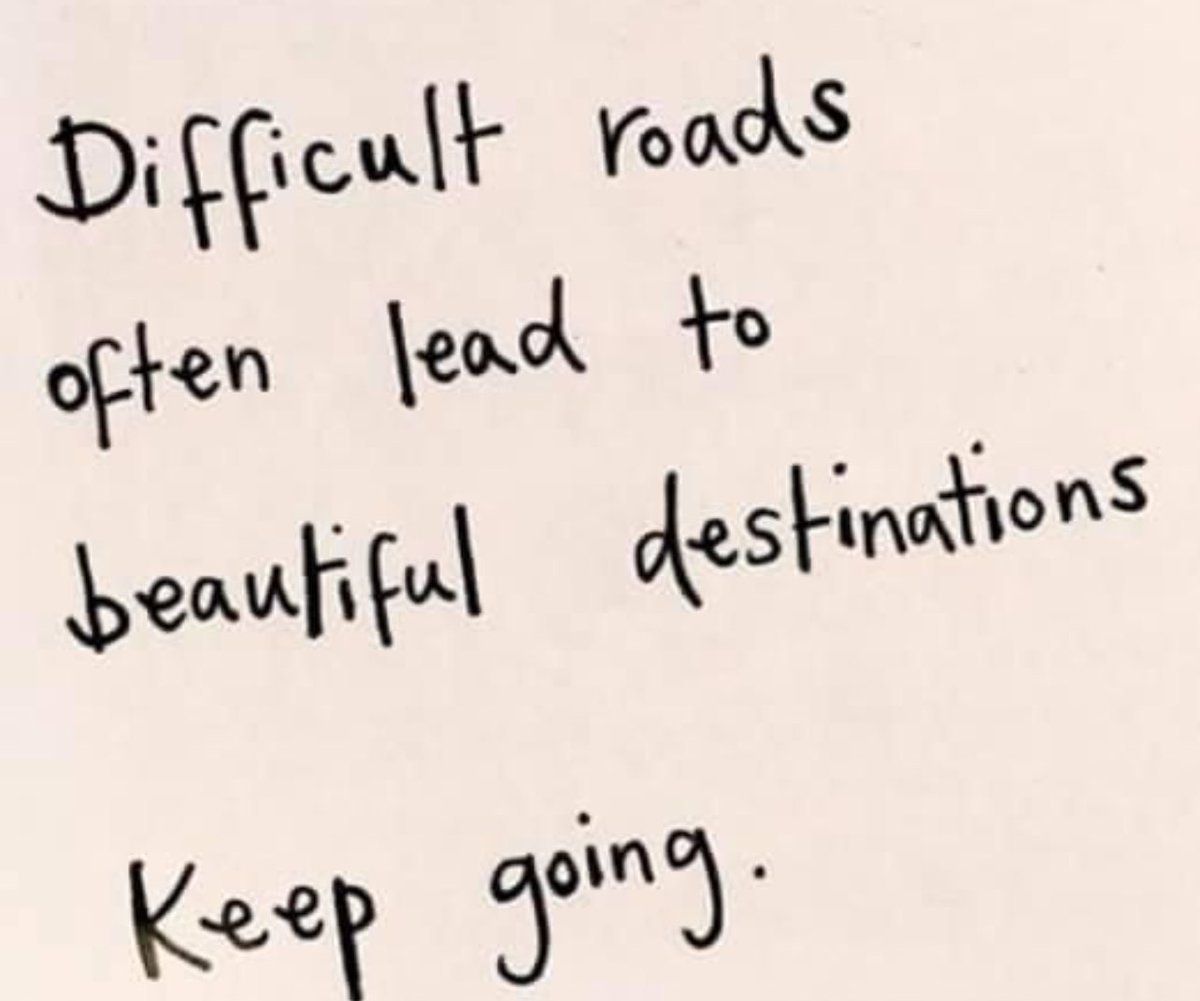 Difficult roads
often lead to
beautiful destinations
Keep going.